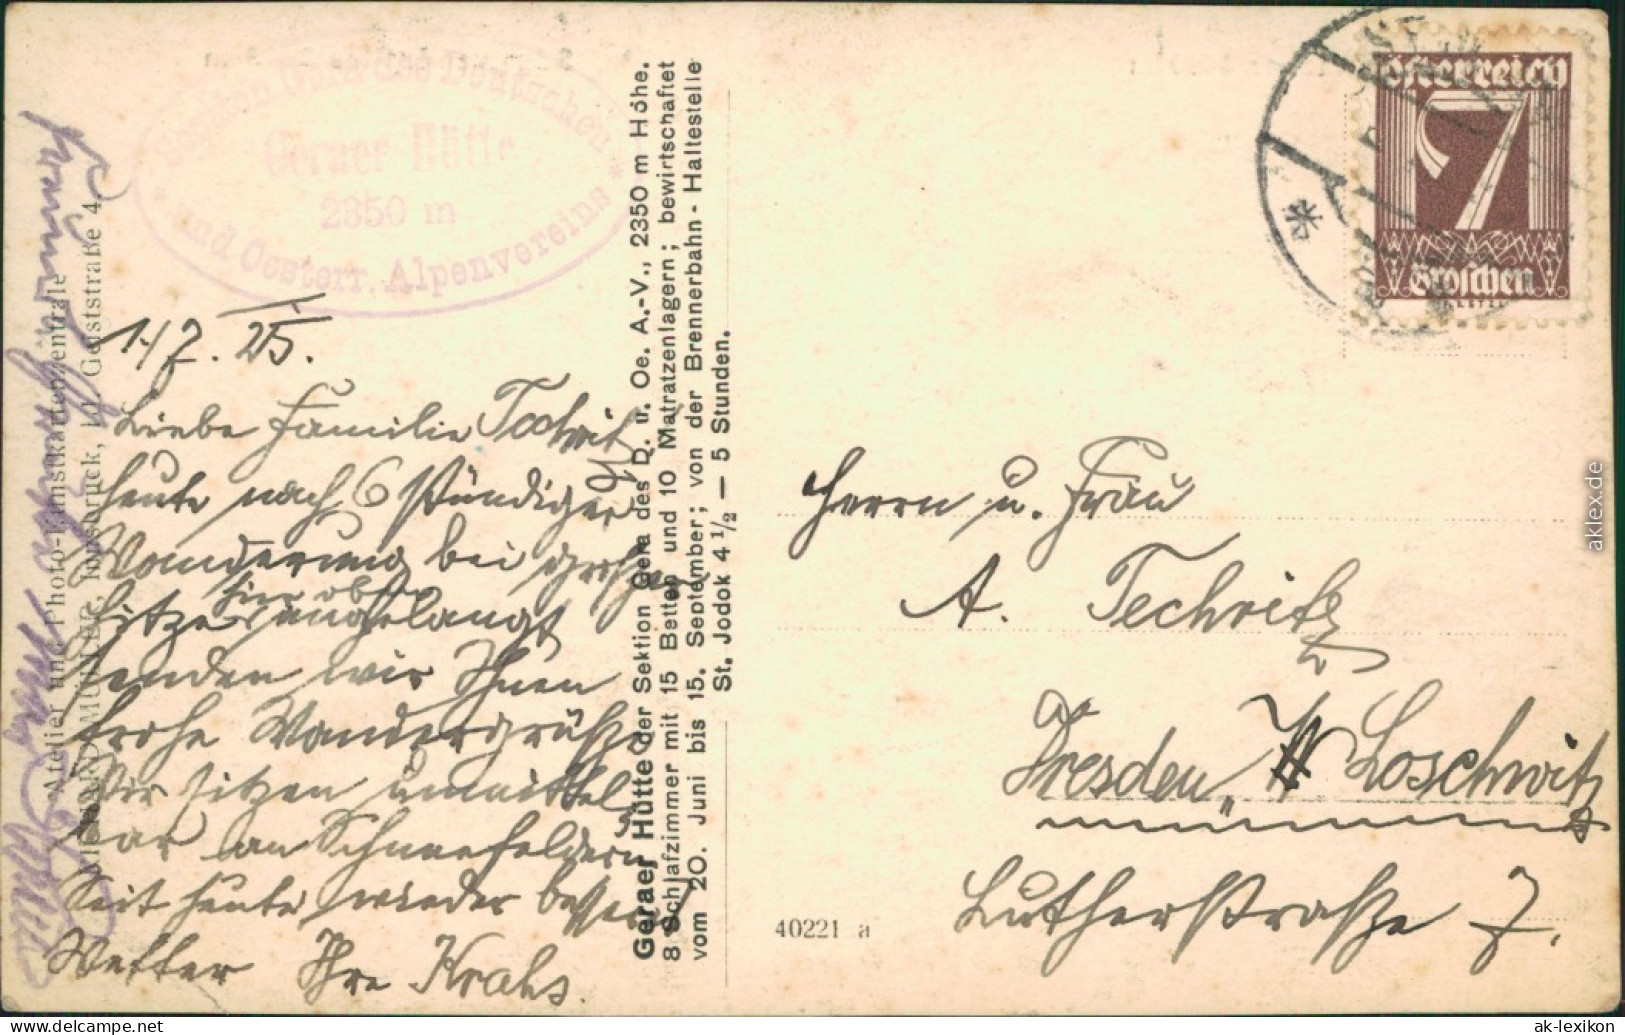 Sektion Gera des Deutschen
Geraer Hütte
2350 m
und Oesterr. Alpenvereins
Österreich
7
Groschen
1./7. 25.
Liebe Familie Techritz
heute nach 6 stündiger
Wanderung bei großer
Hitze hier oben angelangt
senden wir Ihnen
frohe Wandergrüße
Wir sitzen unmittel-
bar an Schneefeldern
Seit heute wieder besseres
Wetter Ihre Krahs.
Atelier und Photo-Kunstkartenzentrale
Innsbruck, Geiststraße 4.
Geraer Hütte der Sektion Gera des D. u. Oe. A.-V., 2350 m Höhe.
8 Schlafzimmer mit 15 Betten und 10 Matratzenlagern; bewirtschaftet
vom 20. Juni bis 15. September; von der Brennerbahn - Haltestelle
St. Jodok 4 1/2 — 5 Stunden.
40221 a
Herrn u. Frau
A. Techritz
Dresden, Loschwitz
Lutherstraße 7.
aklex.de
www.delcampe.net
ak-lexikon